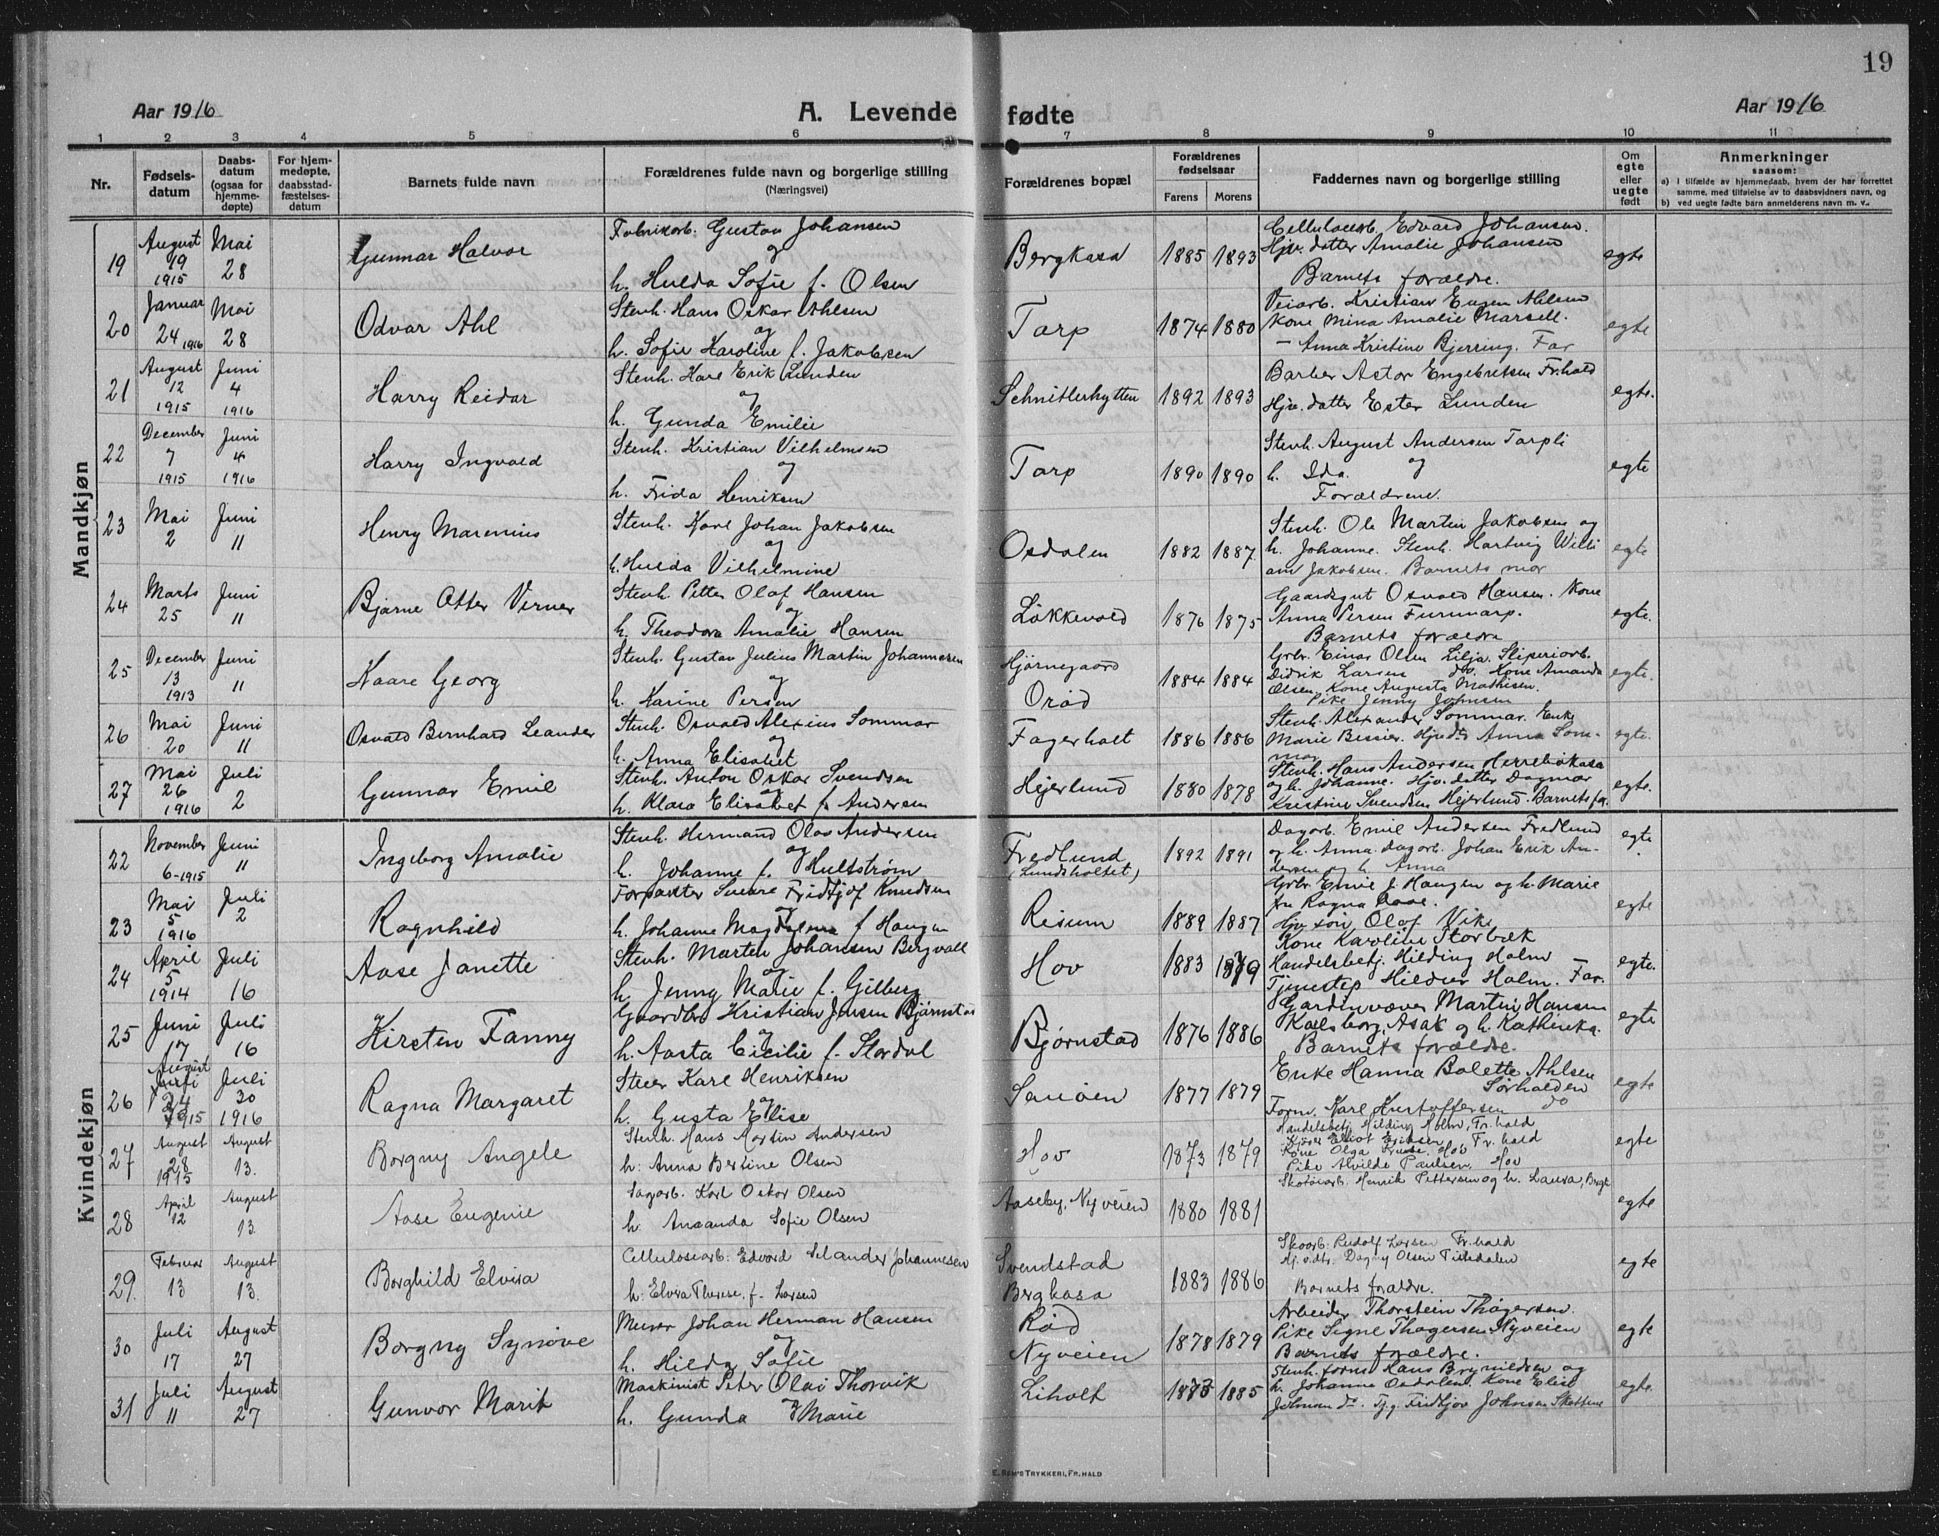 19
Aar 1916
A. Levende fødte
Aar 1916
1 2 3 4 5 6 7 8 9 10 11
Nr.
Fødsels-
datum
Daabs-
datum
(ogsaa for
hjemme-
døpte)
For hjem-
medøpte,
daabsstad-
fæstelses-
datum
Barnets fulde navn
Forældrenes fulde navn og borgerlige stilling
(Næringsvei)
Forældrenes bopæl
Forældrenes
fødselsaar
Farens Morens
Faddernes navn og borgerlige stilling
Om
egte
eller
uegte
født
Anmerkninger
saasom:
a) I tilfælde av hjemmedaab, hvem der har forrettet
samme, med tilføielse av to daabsvidners navn, og
b) ved uegte fødte barn anmelderens navn m. v..
Mandkjøn
19 August 19 1915 Mai 28 Gunnar Halvor
Fabrikarb. Gustav Johansen
og
h. Hulda Sofie f. Olsen
Bergkasa 1885 1893
Cellulosearb. Edvard Johansen.
Hjv. datter Amalie Johansen
Barnets forældre.
egte
20 Januar 24 1916 Mai 28 Odvar Ahl
Stenh. Hans Oskar Ahlsen
og
h. Sofie Karoline f. Jakobsen
Torp 1874 1880
Veiarb. Kristian Eugen Ahlsen
Kone Mina Amalie Marsell.
— Anna Kristine Bjerring. Far
egte
21 August 12 1915 Juni 4 1916 Harry Reidar
Stenh. Karl Erik Lunden
og
h. Gunda Emilie
Schnitlerhytten 1892 1893
Barber Astor Engebretsen Fr.hald
Hjv. datter Ester Lunden
egte.
22 December 7 1915 Juni 4 1916 Harry Ingvald
Stenh. Kristian Vilhelmsen
og
h. Frida Henriksen
Torp 1890 1890
Stenh. August Andersen Torpli
h. Ida. og
Forældrene.
egte
23 Mai 2 Juni 11 Henry Marenius
Stenh. Karl Johan Jakobsen
og
h. Hulda Vilhelmine
Osdalen 1882 1887
Stenh. Ole Marten Jakobsen og
h. Johanne. Stenh. Hartvig Willi
am Jakobsen. Barnets mor
egte
24 Marts 25 Juni 11 Bjarne Otter Verner
Stenh. Petter Olaf Hansen
og
h. Theodora Amalie Hansen
Løkkevold 1876 1875
Gaardsgut Osvald Hansen. Kone
Anna Persen
Barnets forældre
egte.
25 December 13 1913 Juni 11 Kaare Georg
Stenh. Gustav Julius Martin Johannesen
og
h. Karine Persen
Hjørnegaard
Orød 1884 1884
Grbr. Einar Olsen Lilja. Sliperiarb.
Didrik Larsen do. Kone Amanda
Olsen, Kone Augusta Mathisen.
Pike Jenny Johnsen
egte.
26 Mai 20 Juni 11 Osvald Bernhard Leander
Stenh. Osvald Alexius Sommar
og
h. Anna Elisabet
Fagerholt 1886 1886
Stenh. Alexander Sommar. Enke
Marie Bessier. Hjv. dtr Anna Som-
mar
egte.
27 Mai 26 1916 Juli 2 Gunnar Emil
Stenh. Anton Oskar Svendsen
og
h. Klara Elisabet f. Andersen
Hejerlund 1880 1878
Stenh. Hans Andersen Herrebøkasa
og h. Johanne. Hjv. datter Dagmar
Kristine Svendsen Hejerlund. Barnets far.
egte.
Kvindekjøn
22 November 6-1915 Juni 11 Ingeborg Amalie
Stenh. Hermand Olas Andersen
og
h. Johanne f. Hultstrøm
Fredlund
(Lundsholtet) 1892 1891
Dagarb. Emil Andersen Fredlund
og h. Anna. Dagarb. Johan Erik An-
dersen og h. Anna
egte.
23 Mai 5 1916 Juli 2 Ragnhild
Forpakter Sverre Fridtjof Knudsen
og
h. Johanne Magdalena f Haugen
Risum 1889 1887
Grbr Emil J. Haugen og h. Marie
frk Ragna
Hjv søn Olof Vik.
egte
24 April 5 1914 Juli 16 Aase Janette
Stenh. Marten Johansen Bergvall
og
h. Jenny Marie f. Gilberg
Hov 1883 1879
Kone Karoline Storbæk
Handelsbetj. Hilding Holm
Tjenestep Hildur Holm. Far.
egte.
25 Juni 17 Juli 16 Kirsten Fanny
Gaardbr Kristian Jensen Bjørnstad
og
h. Aasta Cicilie f. Stordal
Bjørnstad 1876 1886
Gardinvæver Martin Hansen
Karlsborg, Asak og h. Kathinka.
Barnets forældre.
egte
26 August 24 1915 Juli 30 1916 Ragna Margaret
Steier Karl Henriksen
og
h. Gusta Elise
1877 1879
Enke Hanna Bolette Ahlsen
Sørhalden
Form. Karl Kristoffersen do
egte
27 August 28 1915 August 13. Borgny Angele
Stenh. Hans Martin Andersen
h. Anna Bertine Olsen
Hov 1873 1879
Handelsbetj. Hilding Holm, Fr.hald
Eriksen, Fr.hald
Kone Olga Hov
Pike Alvilde Paulsen, Hov
egte
28 April 12 August 13 Aase Eugenie
Dagarb. Karl Oskar Olsen
h. Amanda Sofie Olsen
Aaseby, Nyveien 1880 1881
Skotøiarb. Henrik Pettersen og h. Laura, Bergk
egte
29. Februar 13 August 13. Borghild Elvira
Cellulosearb. Edvard Selander Johannesen
h. Elvira Therese f. Larsen
Svendstad
Bergkasa 1883 1886
Skoarb. Rudolf Larsen Fr.hald
Hj.v.dtr. Dagny Olsen Tistedalen
Barnets forældre.
egte
30 Juli 17 August 27 Borgny Synøve
Murer Johan Herman Hansen
og
h. Hilda Sofie
Rød
Nyveien 1878 1879
Arbeider Thorstein Thøgersen.
Pike Signe Thøgersen Nyveien
Barnets forældre.
egte
31 Juli 11 August 27 Gunvor Marit
Maskinist Peter Olai Thorvik
og
h. Gunda Marie
Liholt 1873 1885
Stenh. form. Hans Brynildsen og
h. Johanne Osdalen. Kone Elise
Johnsen do. Tj.g. Fridtjov Johnsen
egte.
E. SEM'S TRYKKERI, FR.HALD